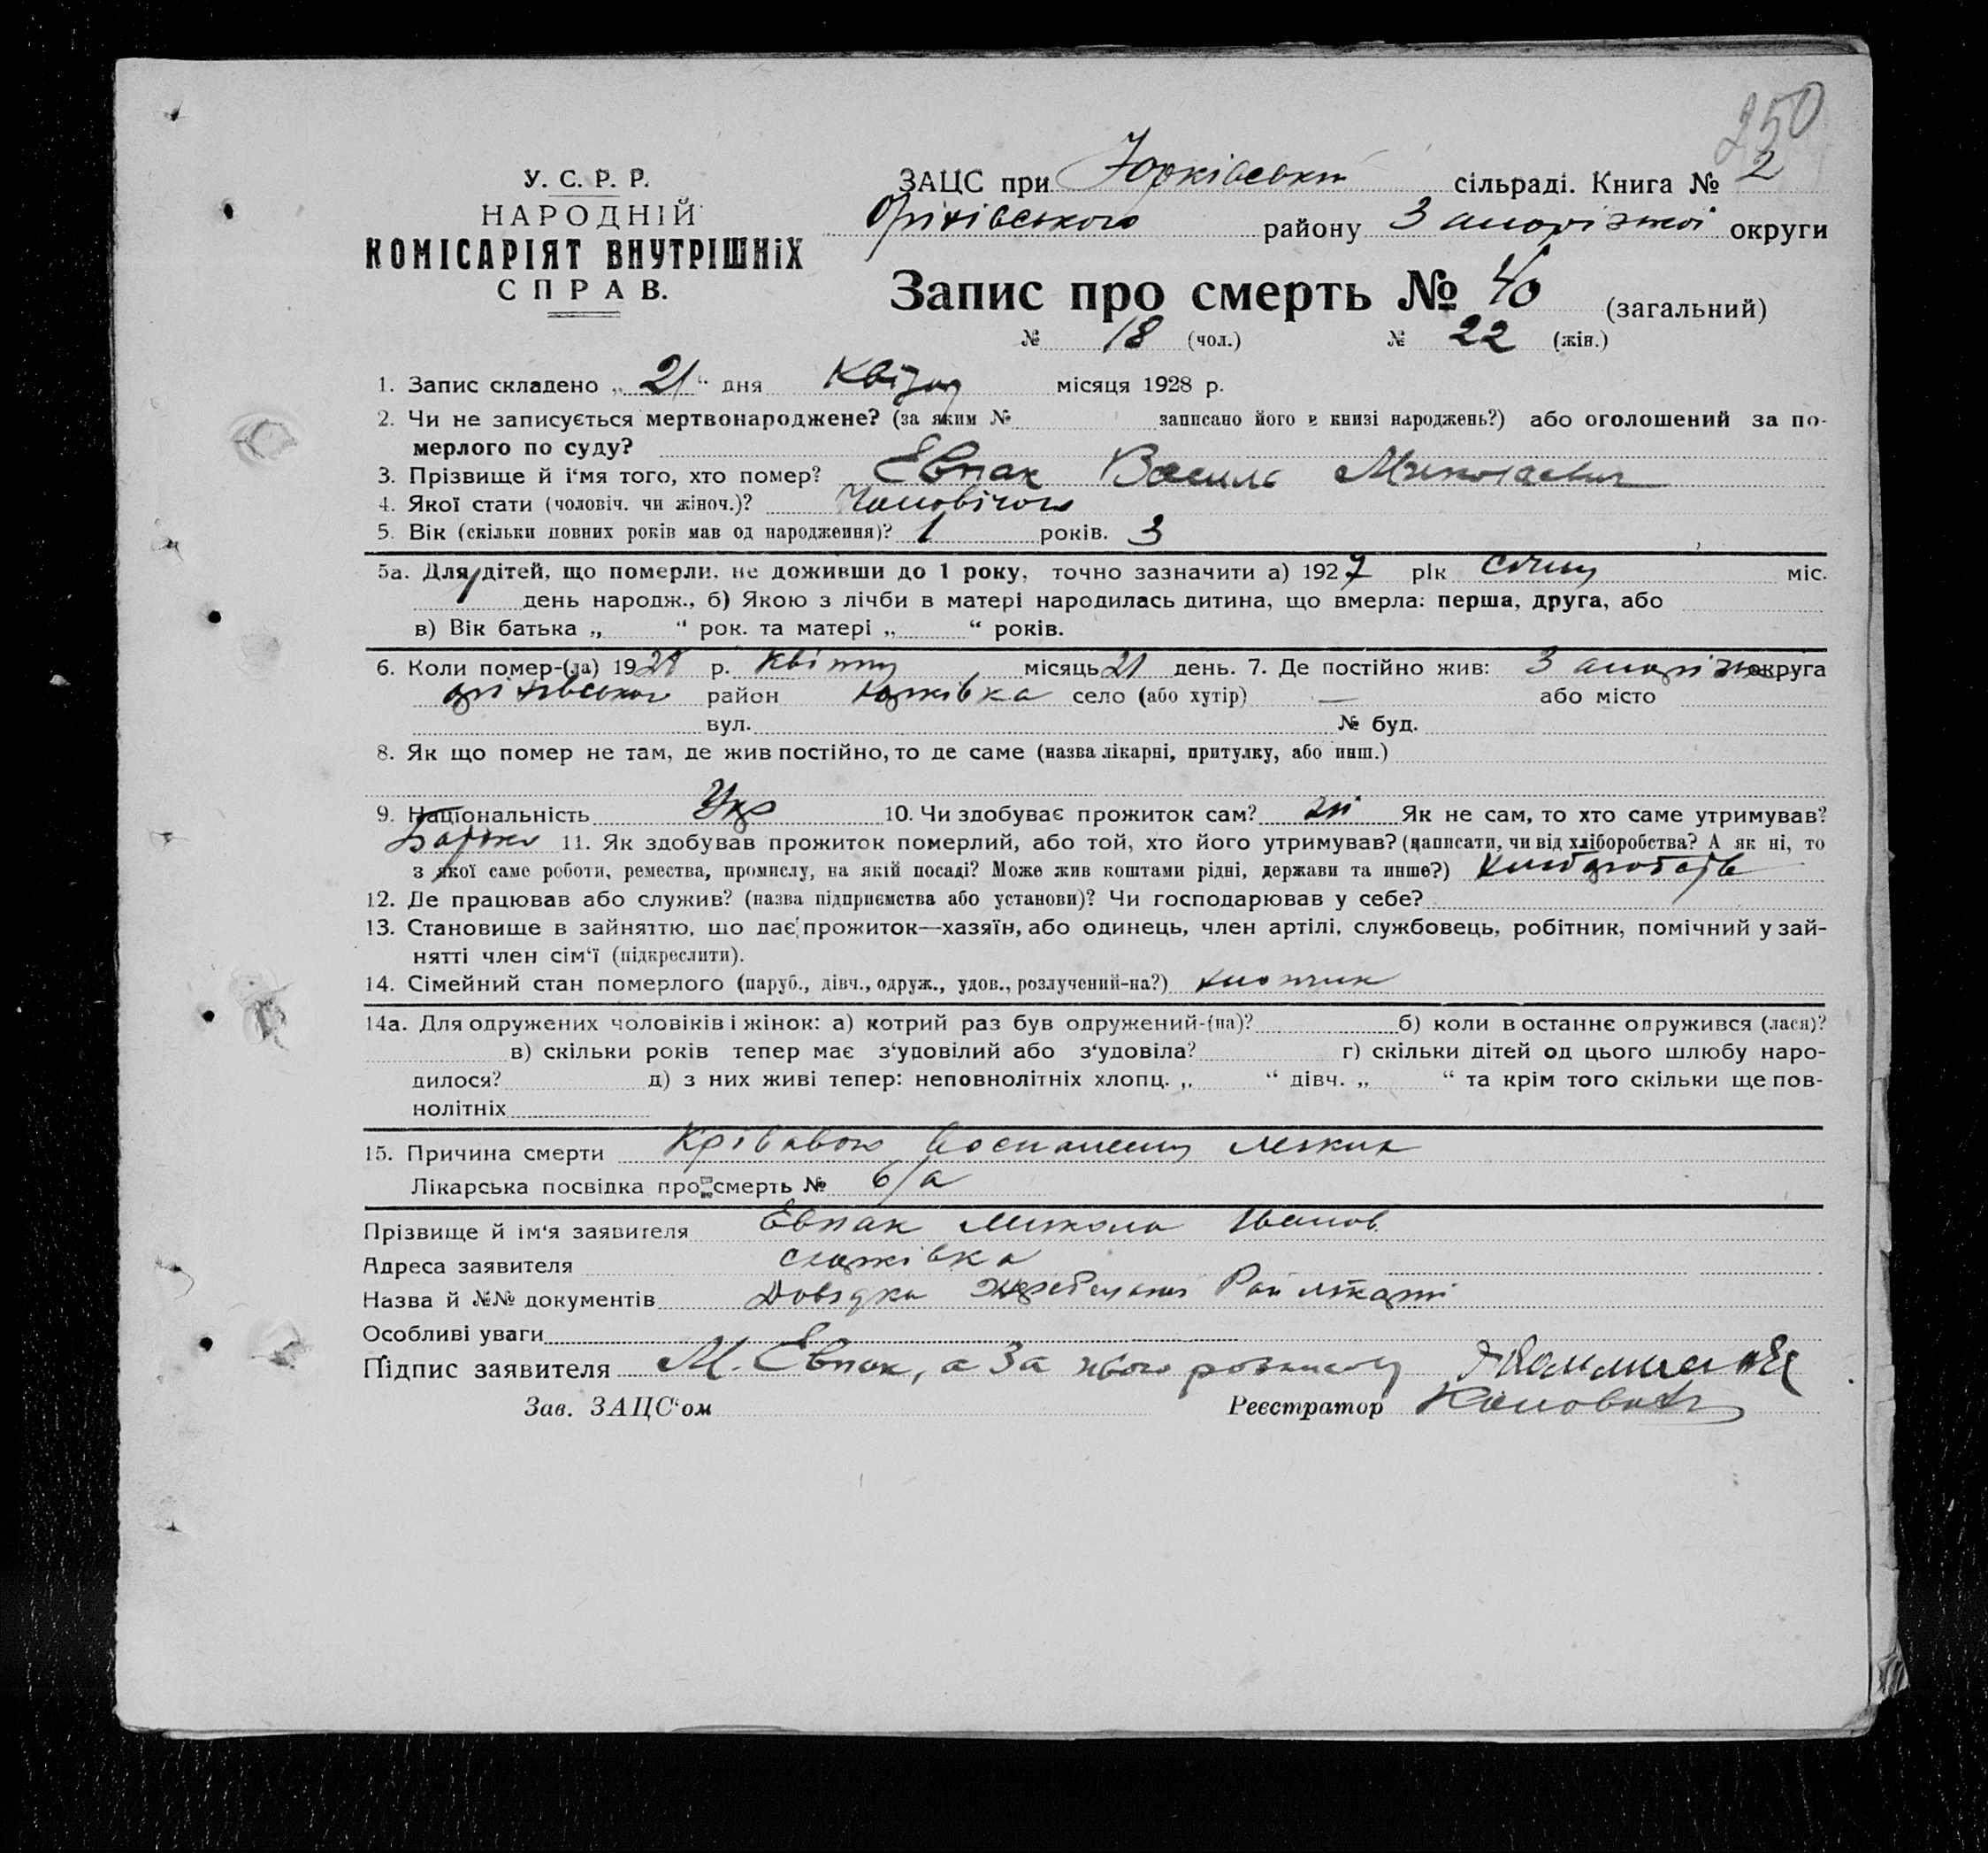 250
У. С. Р. Р.
НАРОДНІЙ
КОМІСАРІЯТ ВНУТРІШНІХ
СПРАВ.
ЗАЦС при Юрківській сільраді. Книга № 2
Оріхівського району Запорізької округи
Запис про смерть № 40 (загальний)
№ 18 (чол.) № 22 (жін.)
1. Запис складено „21“ дня Квітня місяця 1928 р.
2. Чи не записується мертвонароджене? (за яким № записано його в книзі народжень?) або оголошений за по-
мерлого по суду?
3. Прізвище й і‘мя того, хто помер? Евпак Василь Миколаевич
4. Якої стати (чоловіч. чи жіноч.)? Чоловічого
5. Вік (скільки повних років мав од народження)? 1 років. 3
5а. Для дітей, що померли, не доживши до 1 року, точно зазначити а) 1927 рік Січня міс.
день народж., б) Якою з лічби в матері народилась дитина, що вмерла: перша, друга, або
в) Вік батька „ “ рок. та матері „ “ років.
6. Коли помер-(ла) 1928 р. Квітня місяць 21 день. 7. Де постійно жив: Запоріж округа
оріхівського район Юрківка село (або хутір) — або місто
вул. № буд.
8. Як що помер не там, де жив постійно, то де саме (назва лікарні, притулку, або инш.)
9. Національність Укр 10. Чи здобуває прожиток сам? ні Як не сам, то хто саме утримував?
Батько 11. Як здобував прожиток померлий, або той, хто його утримував? (написати, чи від хліборобства? А як ні, то
з якої саме роботи, ремества, промислу, на якій посаді? Може жив коштами рідні, держави та инше?) хліборобств
12. Де працював або служив? (назва підприємства або установи)? Чи господарював у себе?
13. Становище в зайняттю, що дає прожиток—хазяїн, або одинець, член артілі, службовець, робітник, помічний у зай-
нятті член сім‘ї (підкреслити).
14. Сімейний стан померлого (паруб., дівч., одруж., удов., розлучений-на?) хлопчик
14а. Для одружених чоловіків і жінок: а) котрий раз був одружений-(на)? б) коли в останнє одружився (лася)?
в) скільки років тепер має з‘удовілий або з‘удовіла? г) скільки дітей од цього шлюбу наро-
дилося? д) з них живі тепер: неповнолітніх хлопц. „ “ дівч. „ “ та крім того скільки ще пов-
нолітніх
15. Причина смерти Крівавою воспалення легких
Лікарська посвідка про смерть № б/а
Прізвище й ім‘я заявителя Евпак Микола Іванов
Адреса заявителя
Назва й №№ документів Довідка Жеребецької Рай лікарні
Особливі уваги
Підпис заявителя М. Евпак, а за його розписався
Зав. ЗАЦС‘ом Реєстратор